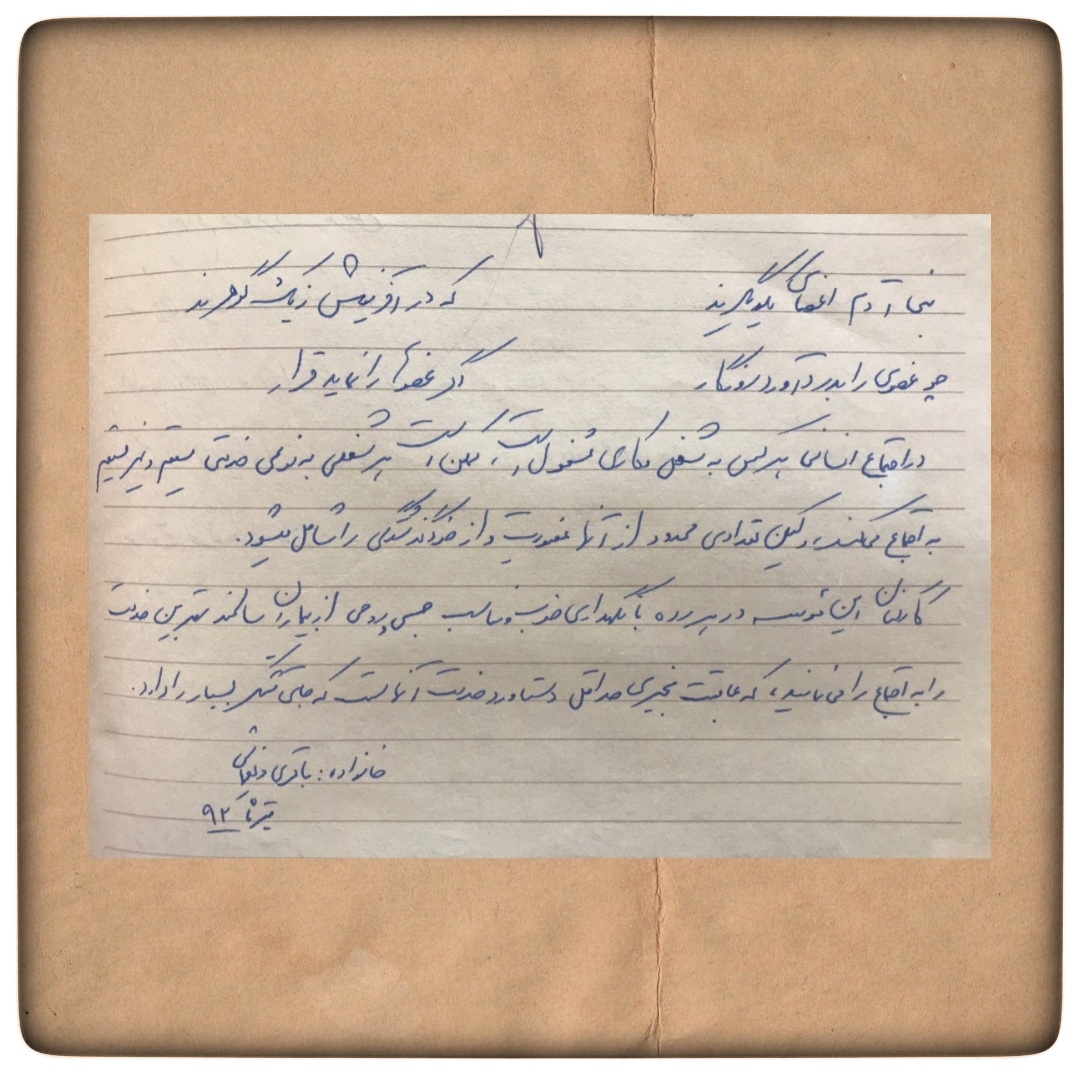 بنی آدم اعضای یکدیگرند که در آفرینش ز یک گوهرند
چو عضوی را بدرد آورد روزگار دگر عضوها را نماند قرار
در اجتماع انسانی هر کس به شغل و کاری مشغول است، ممکن است هر شغلی به نوعی خدمتی مستقیم و غیر مستقیم
به اجتماع میکند، ولیکن تعدادی محدود از آنها و از خودگذشتگی را شامل میشود.
کارکنان این موسسه در هر رده با نگهداری خوب و مناسب جسمی و روحی از بیماران سالمند بهترین خدمت
را به اجتماع را می نمایند، که عاقبت بخیری حداقل دستاورد خدمت آنهاست که جای تشکر بسیار را دارد.
خانواده: باقری
تیرماه ۹۲